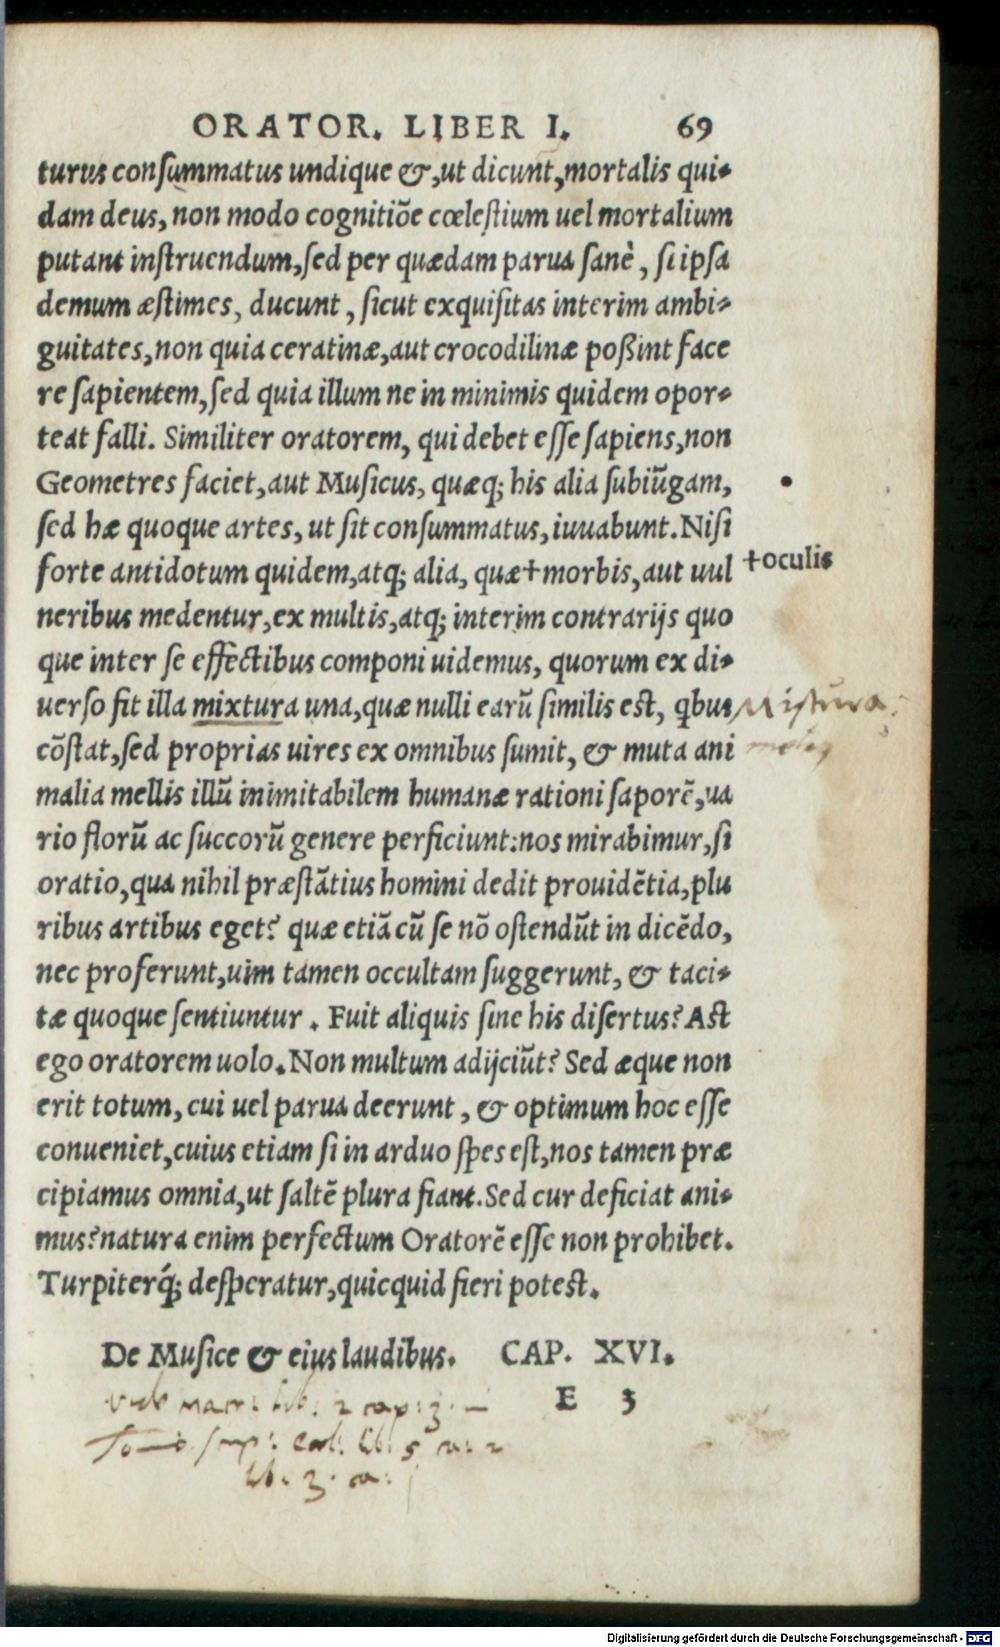 ORATOR. LIBER I. 69
turus consummatus undique &, ut dicunt, mortalis qui-
dam deus, non modo cognitiõe cœlestium uel mortalium
putant instruendum, sed per quædam parua sanè, si ipsa
demum æstimes, ducunt, sicut exquisitas interim ambi-
guitates, non quia ceratinæ, aut crocodilinæ poßint face
re sapientem, sed quia illum ne in minimis quidem opor-
teat falli. Similiter oratorem, qui debet esse sapiens, non
Geometres faciet, aut Musicus, quæq; his alia subiũgam,
sed hæ quoque artes, ut sit consummatus, iuuabunt. Nisi
forte antidotum quidem, atq; alia, quæ+morbis, aut uul
+oculis
neribus medentur, ex multis, atq; interim contrarijs quo
que inter se effectibus componi uidemus, quorum ex di-
uerso fit illa mixtura una, quæ nulli earũ similis est, qbus
Mistura
cõstat, sed proprias uires ex omnibus sumit, & muta ani
malia mellis illũ inimitabilem humanæ rationi saporẽ, ua
rio florũ ac succorũ genere perficiunt: nos mirabimur, si
oratio, qua nihil præstãtius homini dedit prouidẽtia, plu
ribus artibus eget? quæ etiã cũ se nõ ostendũt in dicẽdo,
nec proferunt, uim tamen occultam suggerunt, & taci-
tæ quoque sentiuntur. Fuit aliquis sine his disertus? Ast
ego oratorem uolo. Non multum adijciũt? Sed æque non
erit totum, cui uel parua deerunt, & optimum hoc esse
conueniet, cuius etiam si in arduo spes est, nos tamen præ
cipiamus omnia, ut saltẽ plura fiant. Sed cur deficiat ani-
mus? natura enim perfectum Oratorẽ esse non prohibet.
Turpiterq́; desperatur, quicquid fieri potest.
De Musice & eius laudibus. CAP. XVI.
E 3
lib. 2 cap: 3.
lib. 5
lib. 3.
Digitalisierung gefördert durch die Deutsche Forschungsgemeinschaft - DFG